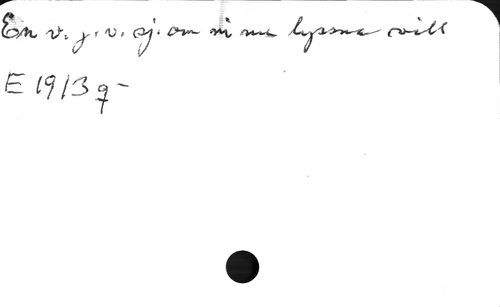 En v. j. v. sj. om ni nu lyssna vill
E 1913 q -